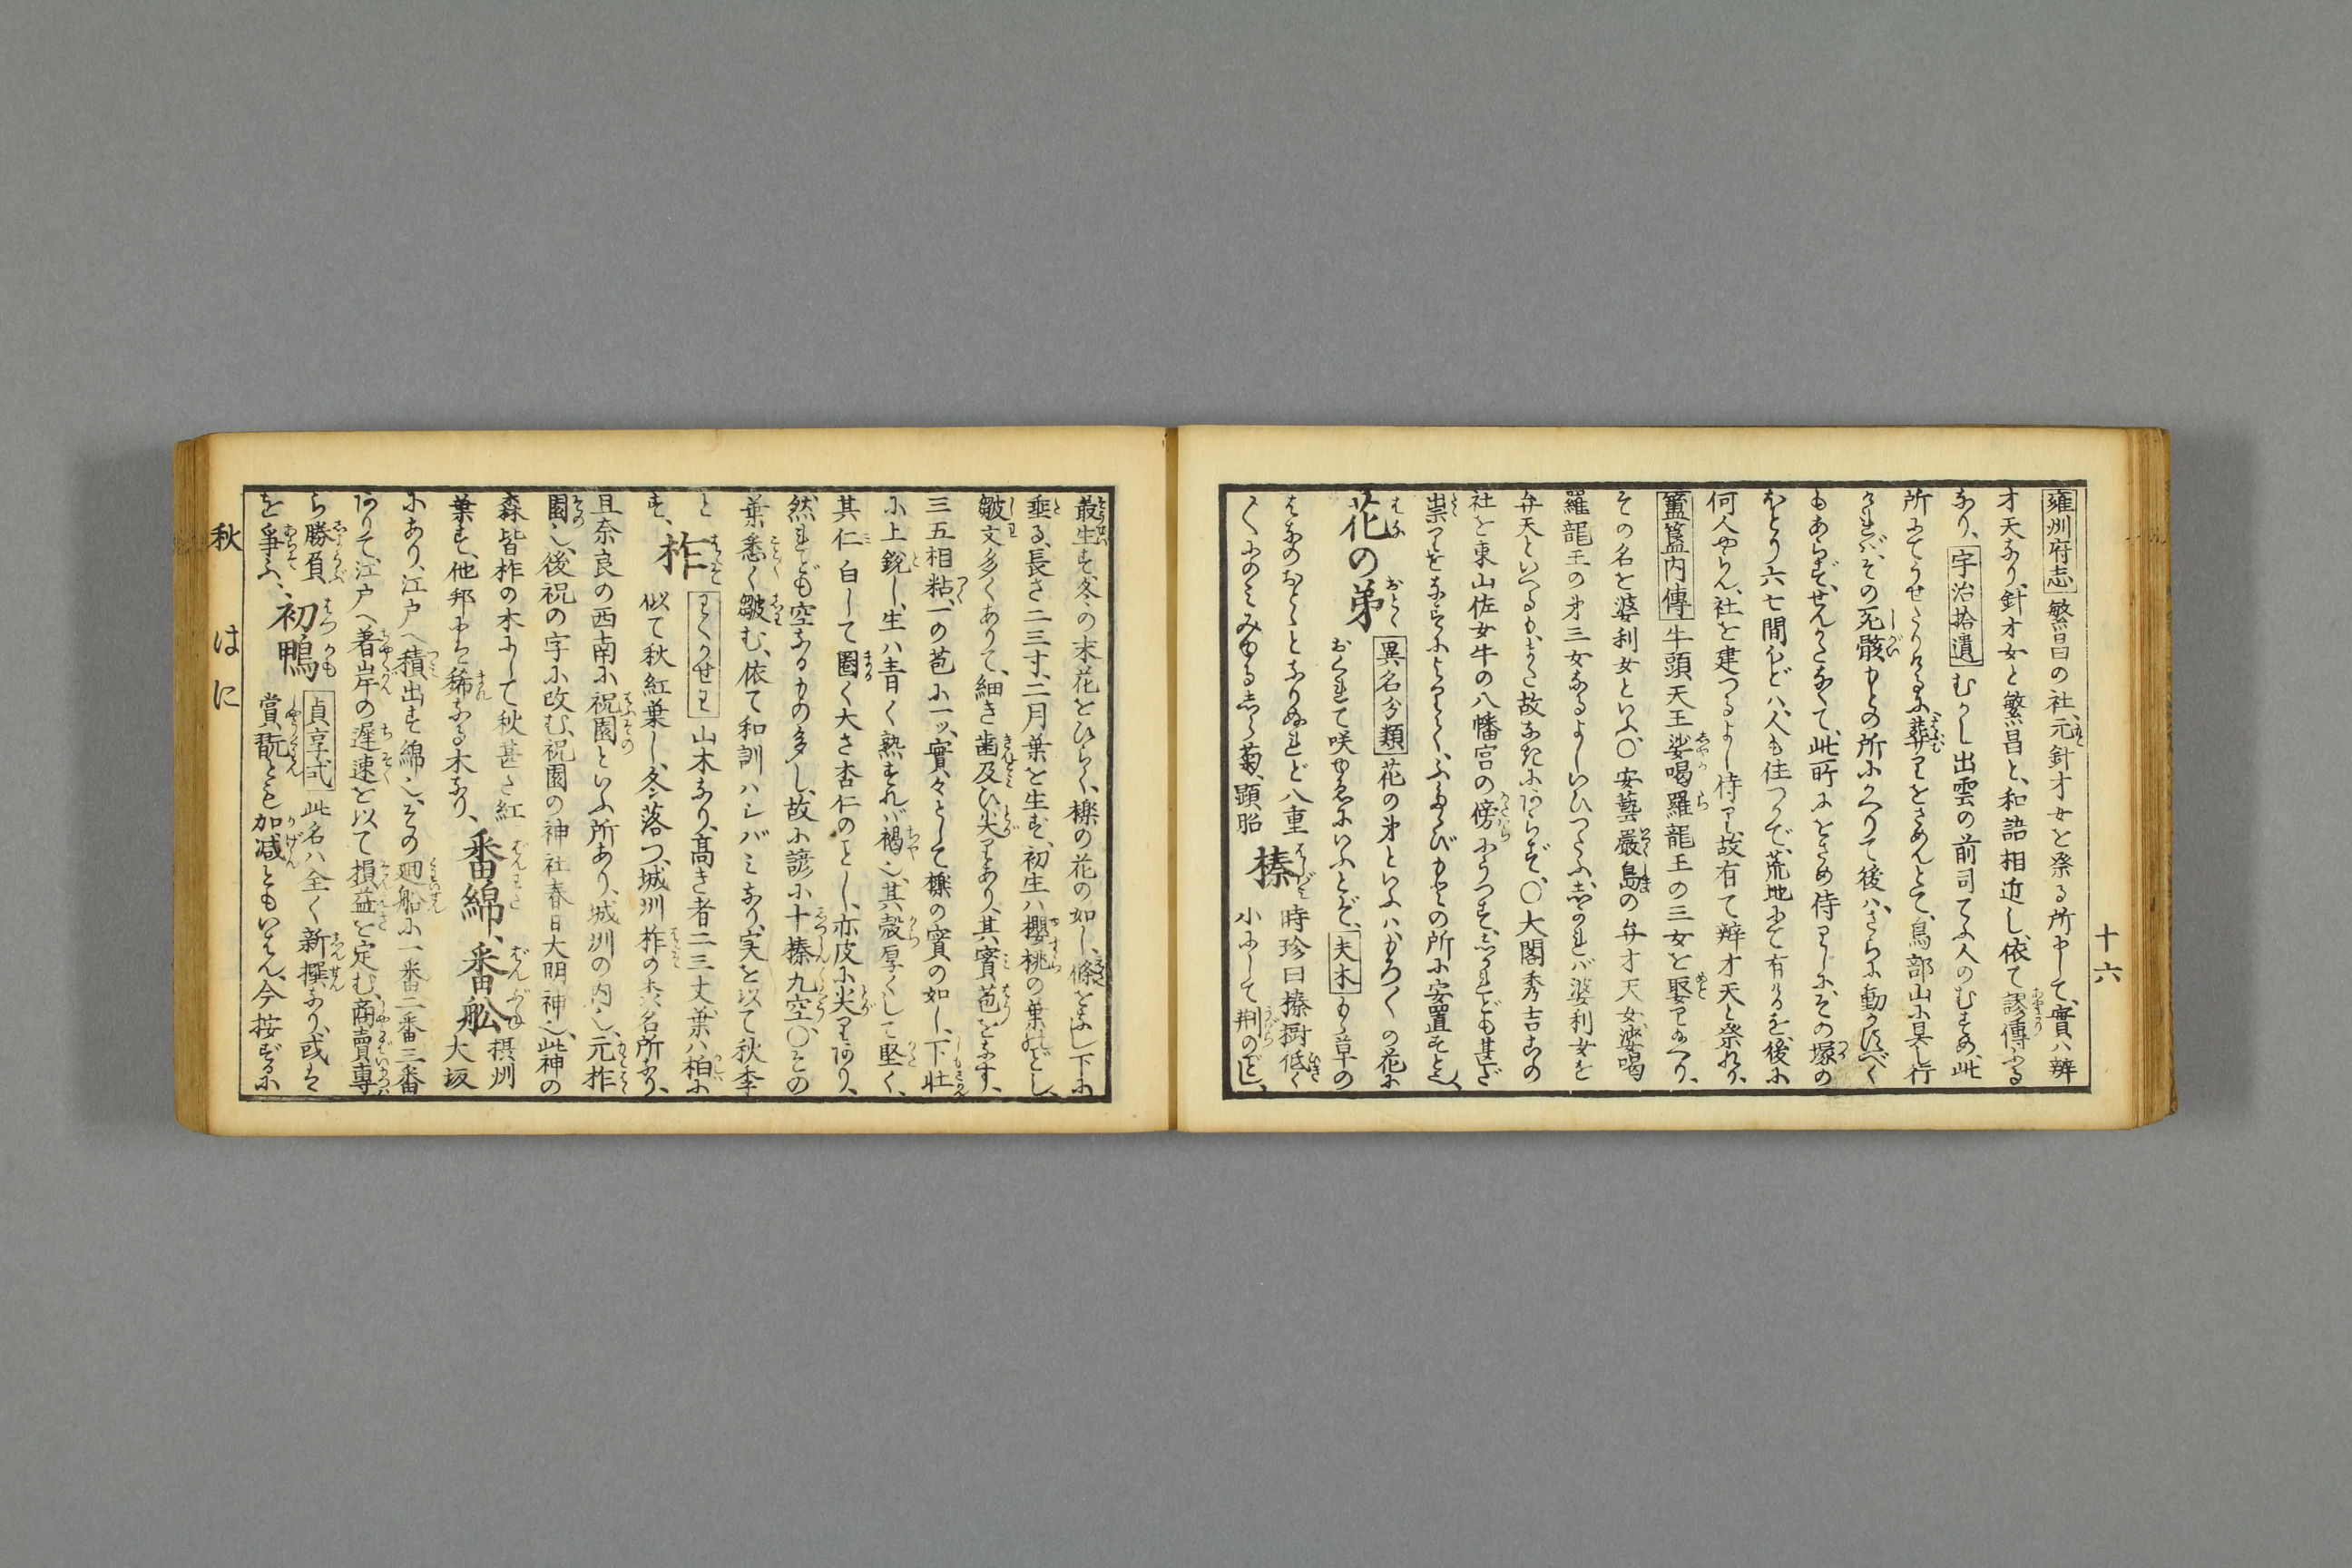 十六
雍州府志 繁昌の社、元針才女を祭る所にして、實ハ辨
才天なり、針才女と繁昌と、和語相近し、依て謬傳ふる
なり、宇治拾遺 むかし出雲の前司てふ人のむすめ、此
所にてうせたりけるに、葬りをさめんとて、鳥部山に具し行
ければ、その死骸もとの所にかへりて後ハ、さらに動かすべく
もあらず、せんかたなくて、此所にをさめ侍りしに、その塚の
ほとり六七間ほどハ、人も住つかで、荒地にて有けるを、後に
何人やらん、社を建つるよし侍り、故有て辨才天と祭れり、
簠簋内傳 牛頭天王娑喝羅龍王の三女を娶り給へり、
その名を婆利女といふ、〇安藝嚴島の弁才天女、娑喝
羅龍王の㐧三女なるよしいひつたふ、しかれバ婆利女を
弁天といへるも、また故なきにあらず、〇大閤秀吉公の
社を東山佐女牛の八幡宮の傍にうつす、しかれども甚だ
祟りをなすによりて、ふたゝびもとの所に安置すと也、
花の弟 異名分類 花の㐧といふハ、もろ〱の花に
おくれて咲ゆゑにいふとぞ、夫木 もゝ草の
はなのおとゝとなりぬれど八重
〱にのミみゆるしら菊、顕昭
榛 時珍曰榛樹低く
小にして荆のごとし、
叢生す冬の末花をひらく、櫟の花の如し、條をなし下に
垂る、長さ二三寸、二月葉を生ず、初生ハ櫻桃の葉のごとし、
皺文多くありて、細き歯及び尖りあり、其實苞をなす、
三五相粘、一の苞に一ッ、實々として櫟の實の如し、下壮
に上鋭し、生ハ青く熟すれバ褐也、其殻厚くして堅く、
其仁白して圓く大さ杏仁のごとし、亦皮に尖りあり、
然れども空なるもの多し、故に諺に十榛九空、〇その
葉悉く皺む、依て和訓ハシバミなり、実を以て秋季
と
柞 わくかせわ 山木なり、高き者二三丈、葉ハ柏に
似て秋紅葉し、冬落つ、城州柞の森名所なり、
す、
且奈良の西南に祝園といふ所あり、城州の内也、元柞
園也、後祝の字に改む、祝園の神社春日大明神也、此神の
森皆柞の木にして秋甚だ紅
葉す、他邦にハ稀なる木なり、
番綿、番舩 摂州
大坂
にあり、江戸へ積出す綿也、その廻船に一番二番三番
ありて、江戸へ著岸の遅速を以て損益を定む、商賣專
ら勝負
を爭ふ、
初鴨 貞享式 此名ハ全く新撰なり、或は
賞翫とも加減ともいはん、今按ずるに
秋 は に